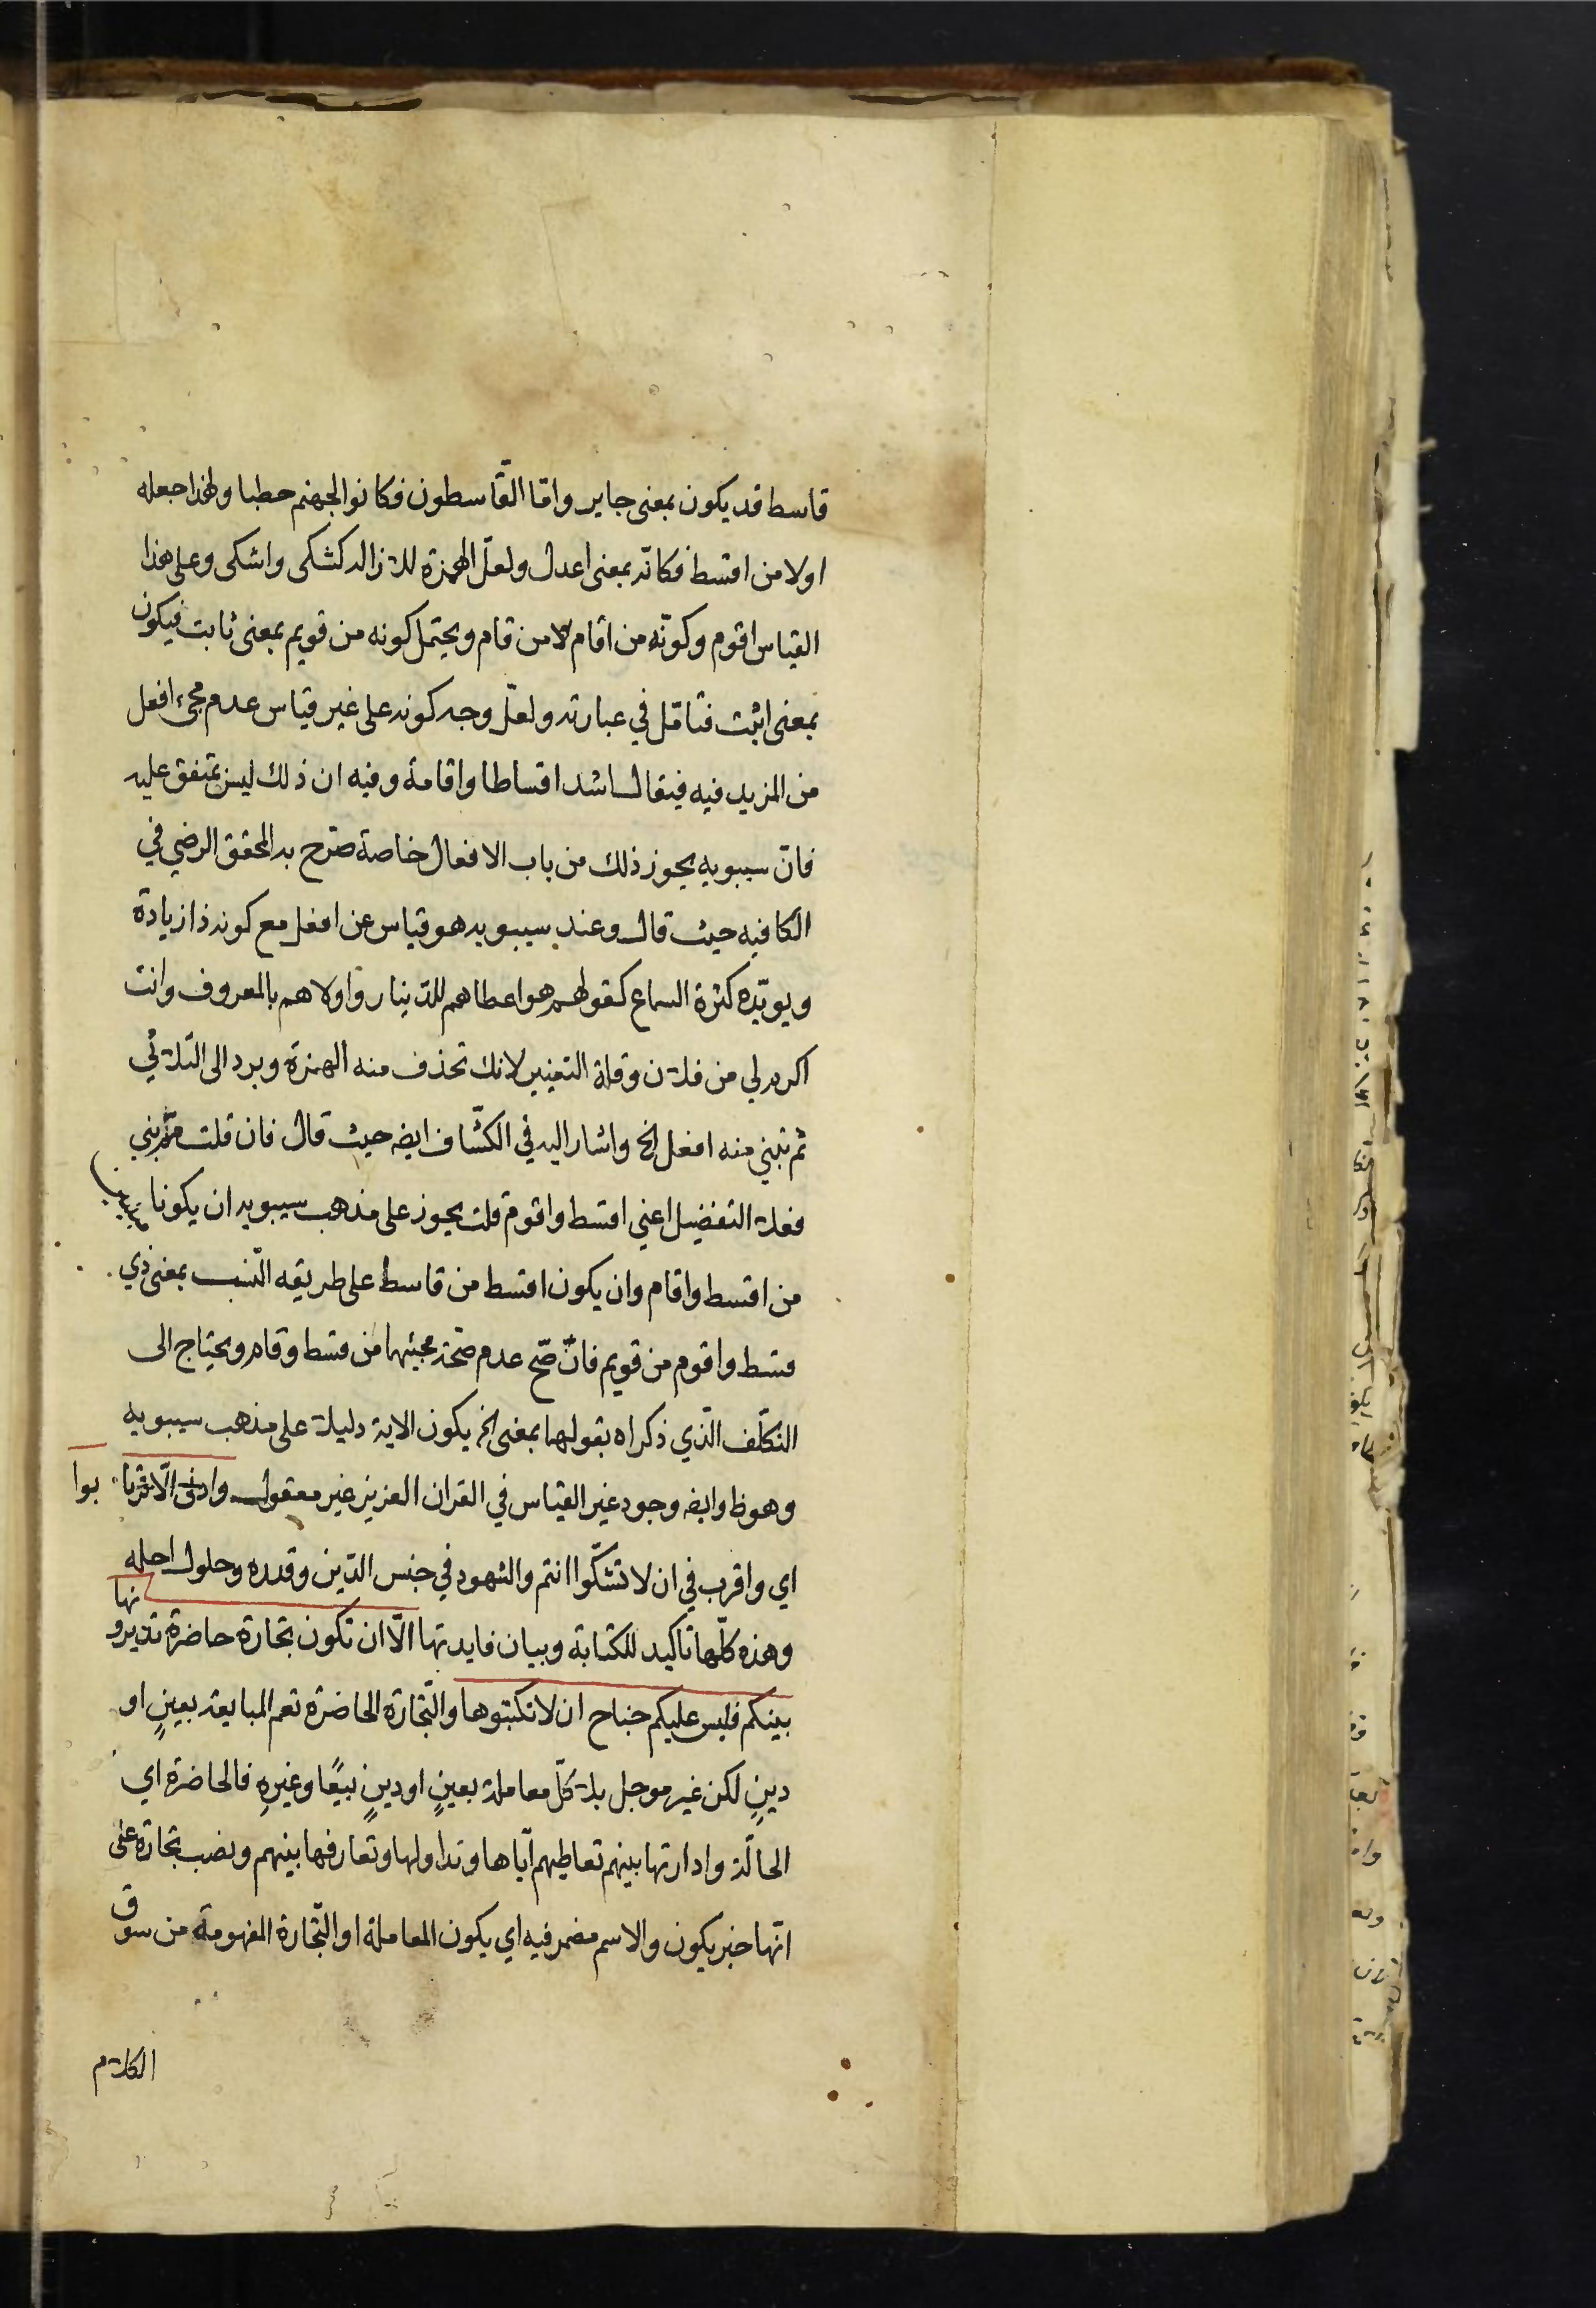 قاسط قد يكون بمعنى جاير وامّا القّاسطون فكانوا لجهنم حطبا ولهذا جعله
اولا من اقسط فكانّه بمعنى اعدل ولعلّ الهمزة للازاله كشكى واشكى وعلى هذا
القياس اقوم وكونّه من اقام لا من قام ويحتمل كونه من قويم بمعنى ثابت فيكون
بمعنى اثبت فتامّل في عبارته ولعلّ وجه كونه على غير قياس عدم مجئ افعل
من المزيد فيه فيقال اشد اقساطا واقامة وفيه ان ذلك ليس بمتفق عليه
فانّ سيبويه يجوز ذلك من باب الافعال خاصة صرّح به المحقق الرضي في
الكافيه حيث قال وعند سيبويه هو قياس عن افعل مع كونه ذا زيادة
ويويّده كثرة السماع كقولهم هو اعطاهم للدّينار واولاهم بالمعروف وانت
اكرم لي من فلان وقلة التغيير لانك تحذف منه الهمزة ويرد الى الثلاثي
ثم تبني منه افعل الخ واشار اليه في الكشّاف ايضه حيث قال فان قلت ممّ بني
فعلا التفضيل اعني اقسط واقوم قلت يجوز على مذهب سيبويه ان يكونا مبنيين
من اقسط واقام وان يكون اقسط من قاسط على طريقه النّسب بمعنى ذي
قسط واقوم من قويم فانّ صّح عدم صّحة مجيئهما من قسط وقام ويحتاج الى
التكلّف الّذي ذكراه بقولهما بمعنى الخ يكون الاية دليلا على مذهب سيبويه
وهو ظ وايضه وجود غير القياس في القران العزيز غير معقول وادنى الّا ترتابوا
اي واقرب في ان لا تشكّوا انتم والشهود في جنس الدّين وقدره وحلول اجله
وهذه كلّها تاكيد للكتابة وبيان فايدتها الّا ان تكون تجارة حاضرة تديرونها
بينكم فليس عليكم جناح ان لا تكتبوها والتّجارة الحاضرة تعم المبايعة بعينٍ او
دينٍ لكن غير موجل بل كلّ معاملة بعينٍ او دينٍ بيعًا وغيرهِ فالحاضرة اي
الحالّة وادارتها بينهم تعاطيهم ايّاها وتداولها وتعارفها بينهم ونصب تجارة على
انّها خبر يكون والاسم مضمر فيه اي يكون المعاملة او التّجارة المفهومة من سوق
الكلام